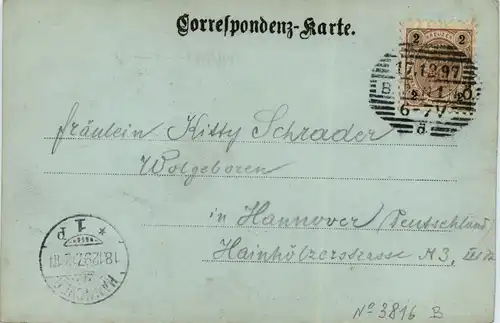 Correspondenz-Karte.
2 KREUZER 2
17.12.97
6-7 V
8.
2 2
Fräulein Kitty Schrader
Wolgeboren
in Hannover (Deutschland)
Hainhölzerstrasse № 3,
1
18.12.97
Nº 3816 B